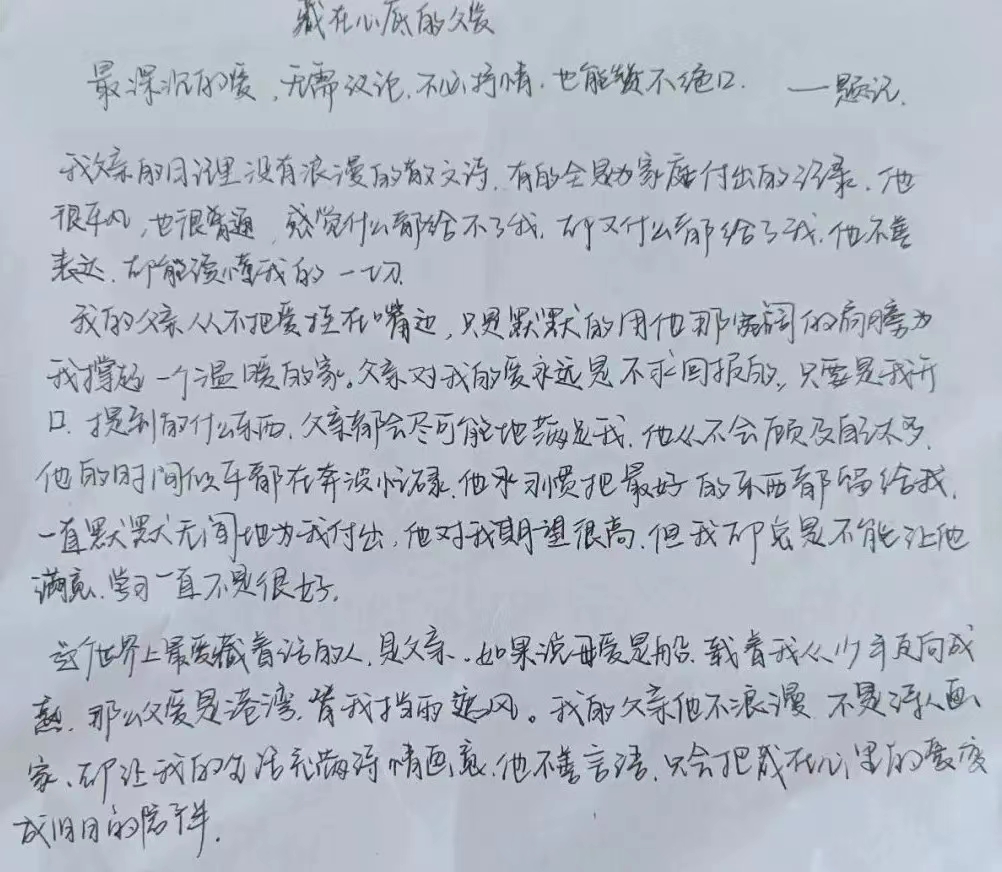 藏在心底的父爱
最深沉的爱，无需议论，不必抒情，也能赞不绝口. ——题记.
我父亲的日记里没有浪漫的散文诗，有的全是为家庭付出的语录，他
很平凡，也很普通，感觉什么都给不了我，却又什么都给了我，他不善
表达，却能读懂我的一切.
我的父亲从不把爱挂在嘴边，只是默默的用他那宽阔的肩膀为
我撑起一个温暖的家。父亲对我的爱永远是不求回报的，只要是我开
口提到的什么东西，父亲都会尽可能地满足我，他从不会顾及自己太多，
他的时间似乎都在奔波忙碌，他永习惯把最好的东西都留给我，
一直默默无闻地为我付出，他对我期望很高，但我却总是不能让他
满意，学习一直不是很好.
这个世界上最爱藏着话的人，是父亲。如果说母爱是船，载着我从少年走向成
熟，那么父爱是港湾，替我挡雨遮风。我的父亲他不浪漫，不是诗人画
家，却让我的生活充满诗情画意，他不善言语，只会把藏在心里的爱变
成旧日的